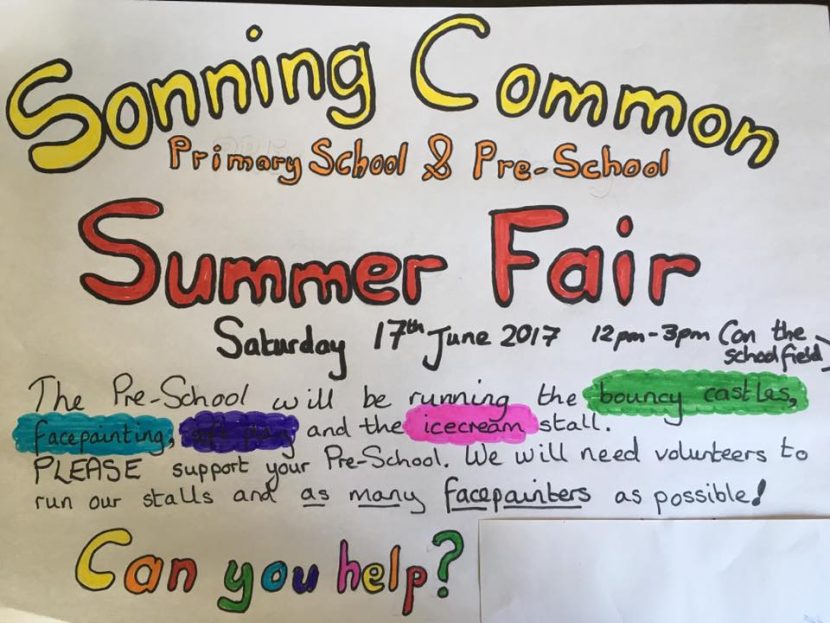 Sonning Common
Primary School & Pre-School
Summer Fair
Saturday 17th June 2017 12pm-3pm (on the
school field)
The Pre-School will be running the bouncy castles,
facepainting, and the icecream stall.
PLEASE support your Pre-School. We will need volunteers to
run our stalls and as many facepainters as possible!
Can you help?